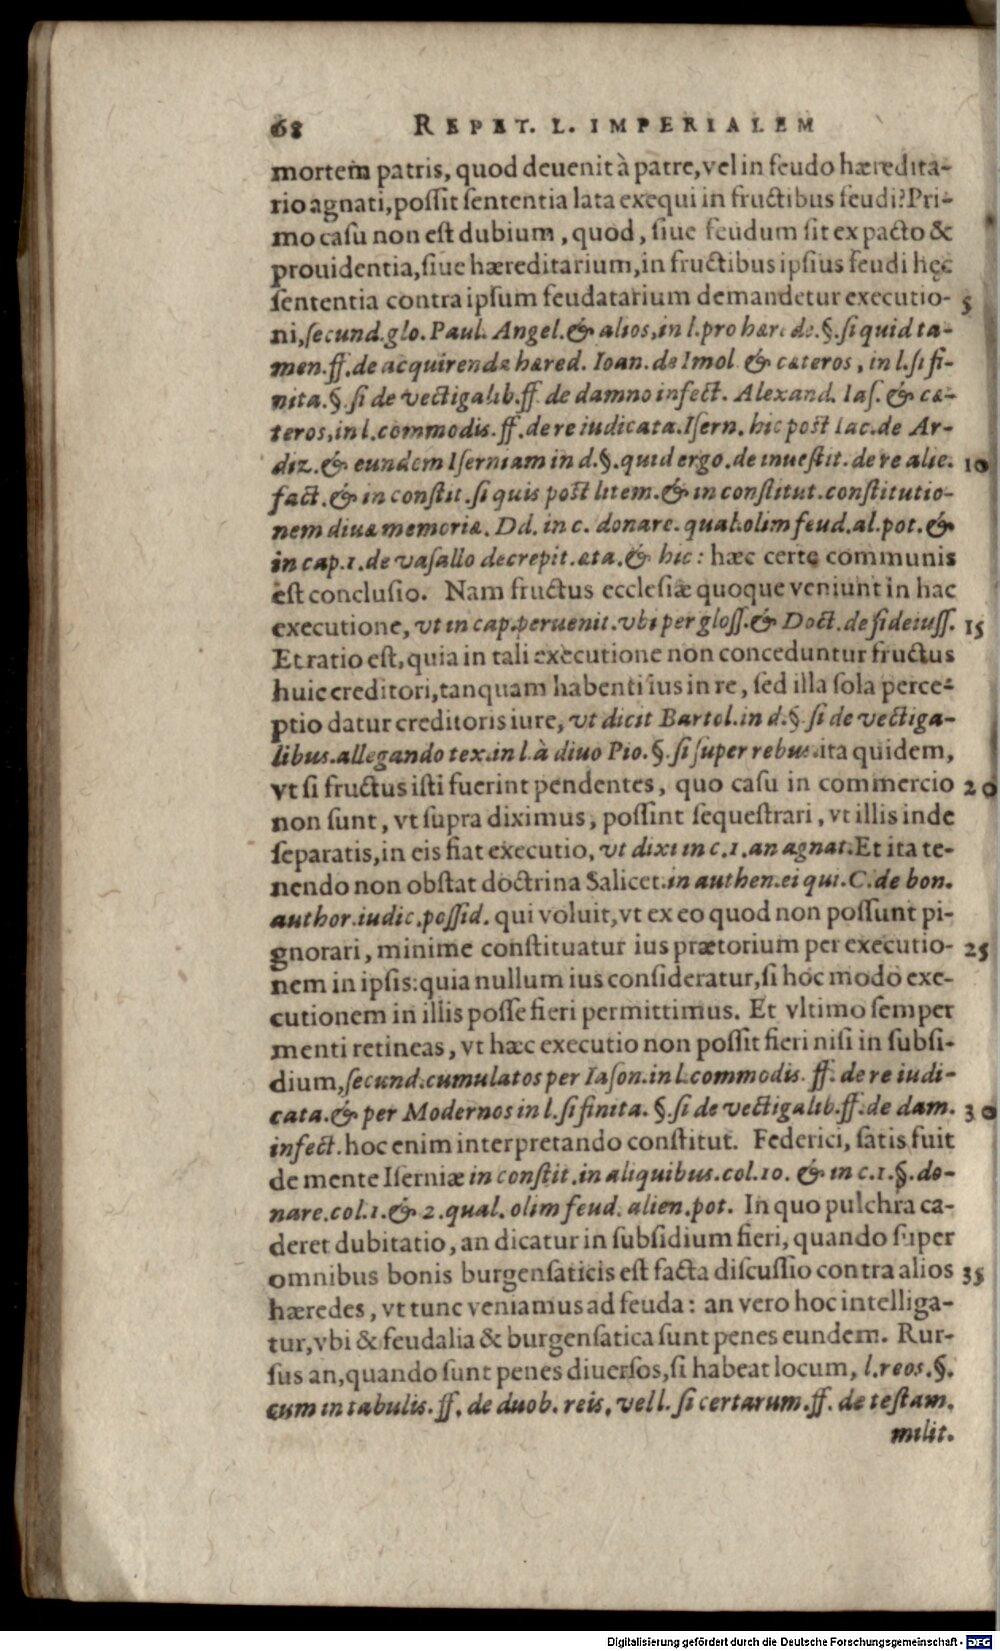 68 REPET. L. IMPERIALEM
mortem patris, quod deuenit à patre, vel in feudo hæredita-
rio agnati, possit sententia lata exequi in fructibus feudi? Pri-
mo casu non est dubium, quod, siue feudum sit ex pacto &
prouidentia, siue hæreditarium, in fructibus ipsius feudi hęc
sententia contra ipsum feudatarium demandetur executio- 5
ni, secund. glo. Paul. Angel. & alios, in l. pro hærede. §. si quid ta-
men. ff. de acquirenda hæred. Ioan. de Imol. & cæteros, in l. si fi-
nita. §. si de vectigalib. ff. de damno infect. Alexand. Ias. & cæ-
teros, in l. commodis. ff. de re iudicata. Isern. hic post Iac. de Ar-
diz. & eundem Iserniam in d. §. quid ergo. de inuestit. de re alie. 10
fact. & in constit. si quis post litem. & in constitut. constitutio-
nem diuæ memoriæ. Dd. in c. donare. qual. olim feud. al. pot. &
in cap. 1. de vasallo decrepit. æta. & hic: hæc certe communis
est conclusio. Nam fructus ecclesiæ quoque veniunt in hac
executione, vt in cap. peruenit. vbi per gloss. & Doct. de fideiuss. 15
Et ratio est, quia in tali executione non conceduntur fructus
huic creditori, tanquam habenti ius in re, sed illa sola perce-
ptio datur creditoris iure, vt dicit Bartol. in d. §. si de vectiga-
libus. allegando tex. in l. à diuo Pio. §. si super rebus. ita quidem,
vt si fructus isti fuerint pendentes, quo casu in commercio 20
non sunt, vt supra diximus, possint sequestrari, vt illis inde
separatis, in eis fiat executio, vt dixi in c. 1. an agnat. Et ita te-
nendo non obstat doctrina Salicet. in authen. ei qui. C. de bon.
author. iudic. possid. qui voluit, vt ex eo quod non possunt pi-
gnorari, minime constituatur ius prætorium per executio- 25
nem in ipsis: quia nullum ius consideratur, si hoc modo exe-
cutionem in illis posse fieri permittimus. Et vltimo semper
menti retineas, vt hæc executio non possit fieri nisi in subsi-
dium, secund. cumulatos per Iason. in l. commodis. ff. de re iudi-
cata. & per Modernos in l. si finita. §. si de vectigalib. ff. de dam. 30
infect. hoc enim interpretando constitut. Federici, satis fuit
de mente Iserniæ in constit. in aliquibus. col. 10. & in c. 1. §. do-
nare. col. 1. & 2. qual. olim feud. alien. pot. In quo pulchra ca-
deret dubitatio, an dicatur in subsidium fieri, quando super
omnibus bonis burgensaticis est facta discussio contra alios 35
hæredes, vt tunc veniamus ad feuda: an vero hoc intelliga-
tur, vbi & feudalia & burgensatica sunt penes eundem. Rur-
sus an, quando sunt penes diuersos, si habeat locum, l. reos. §.
cum in tabulis. ff. de duob. reis, vel l. si certarum. ff. de testam.
milit.
Digitalisierung gefördert durch die Deutsche Forschungsgemeinschaft - DFG